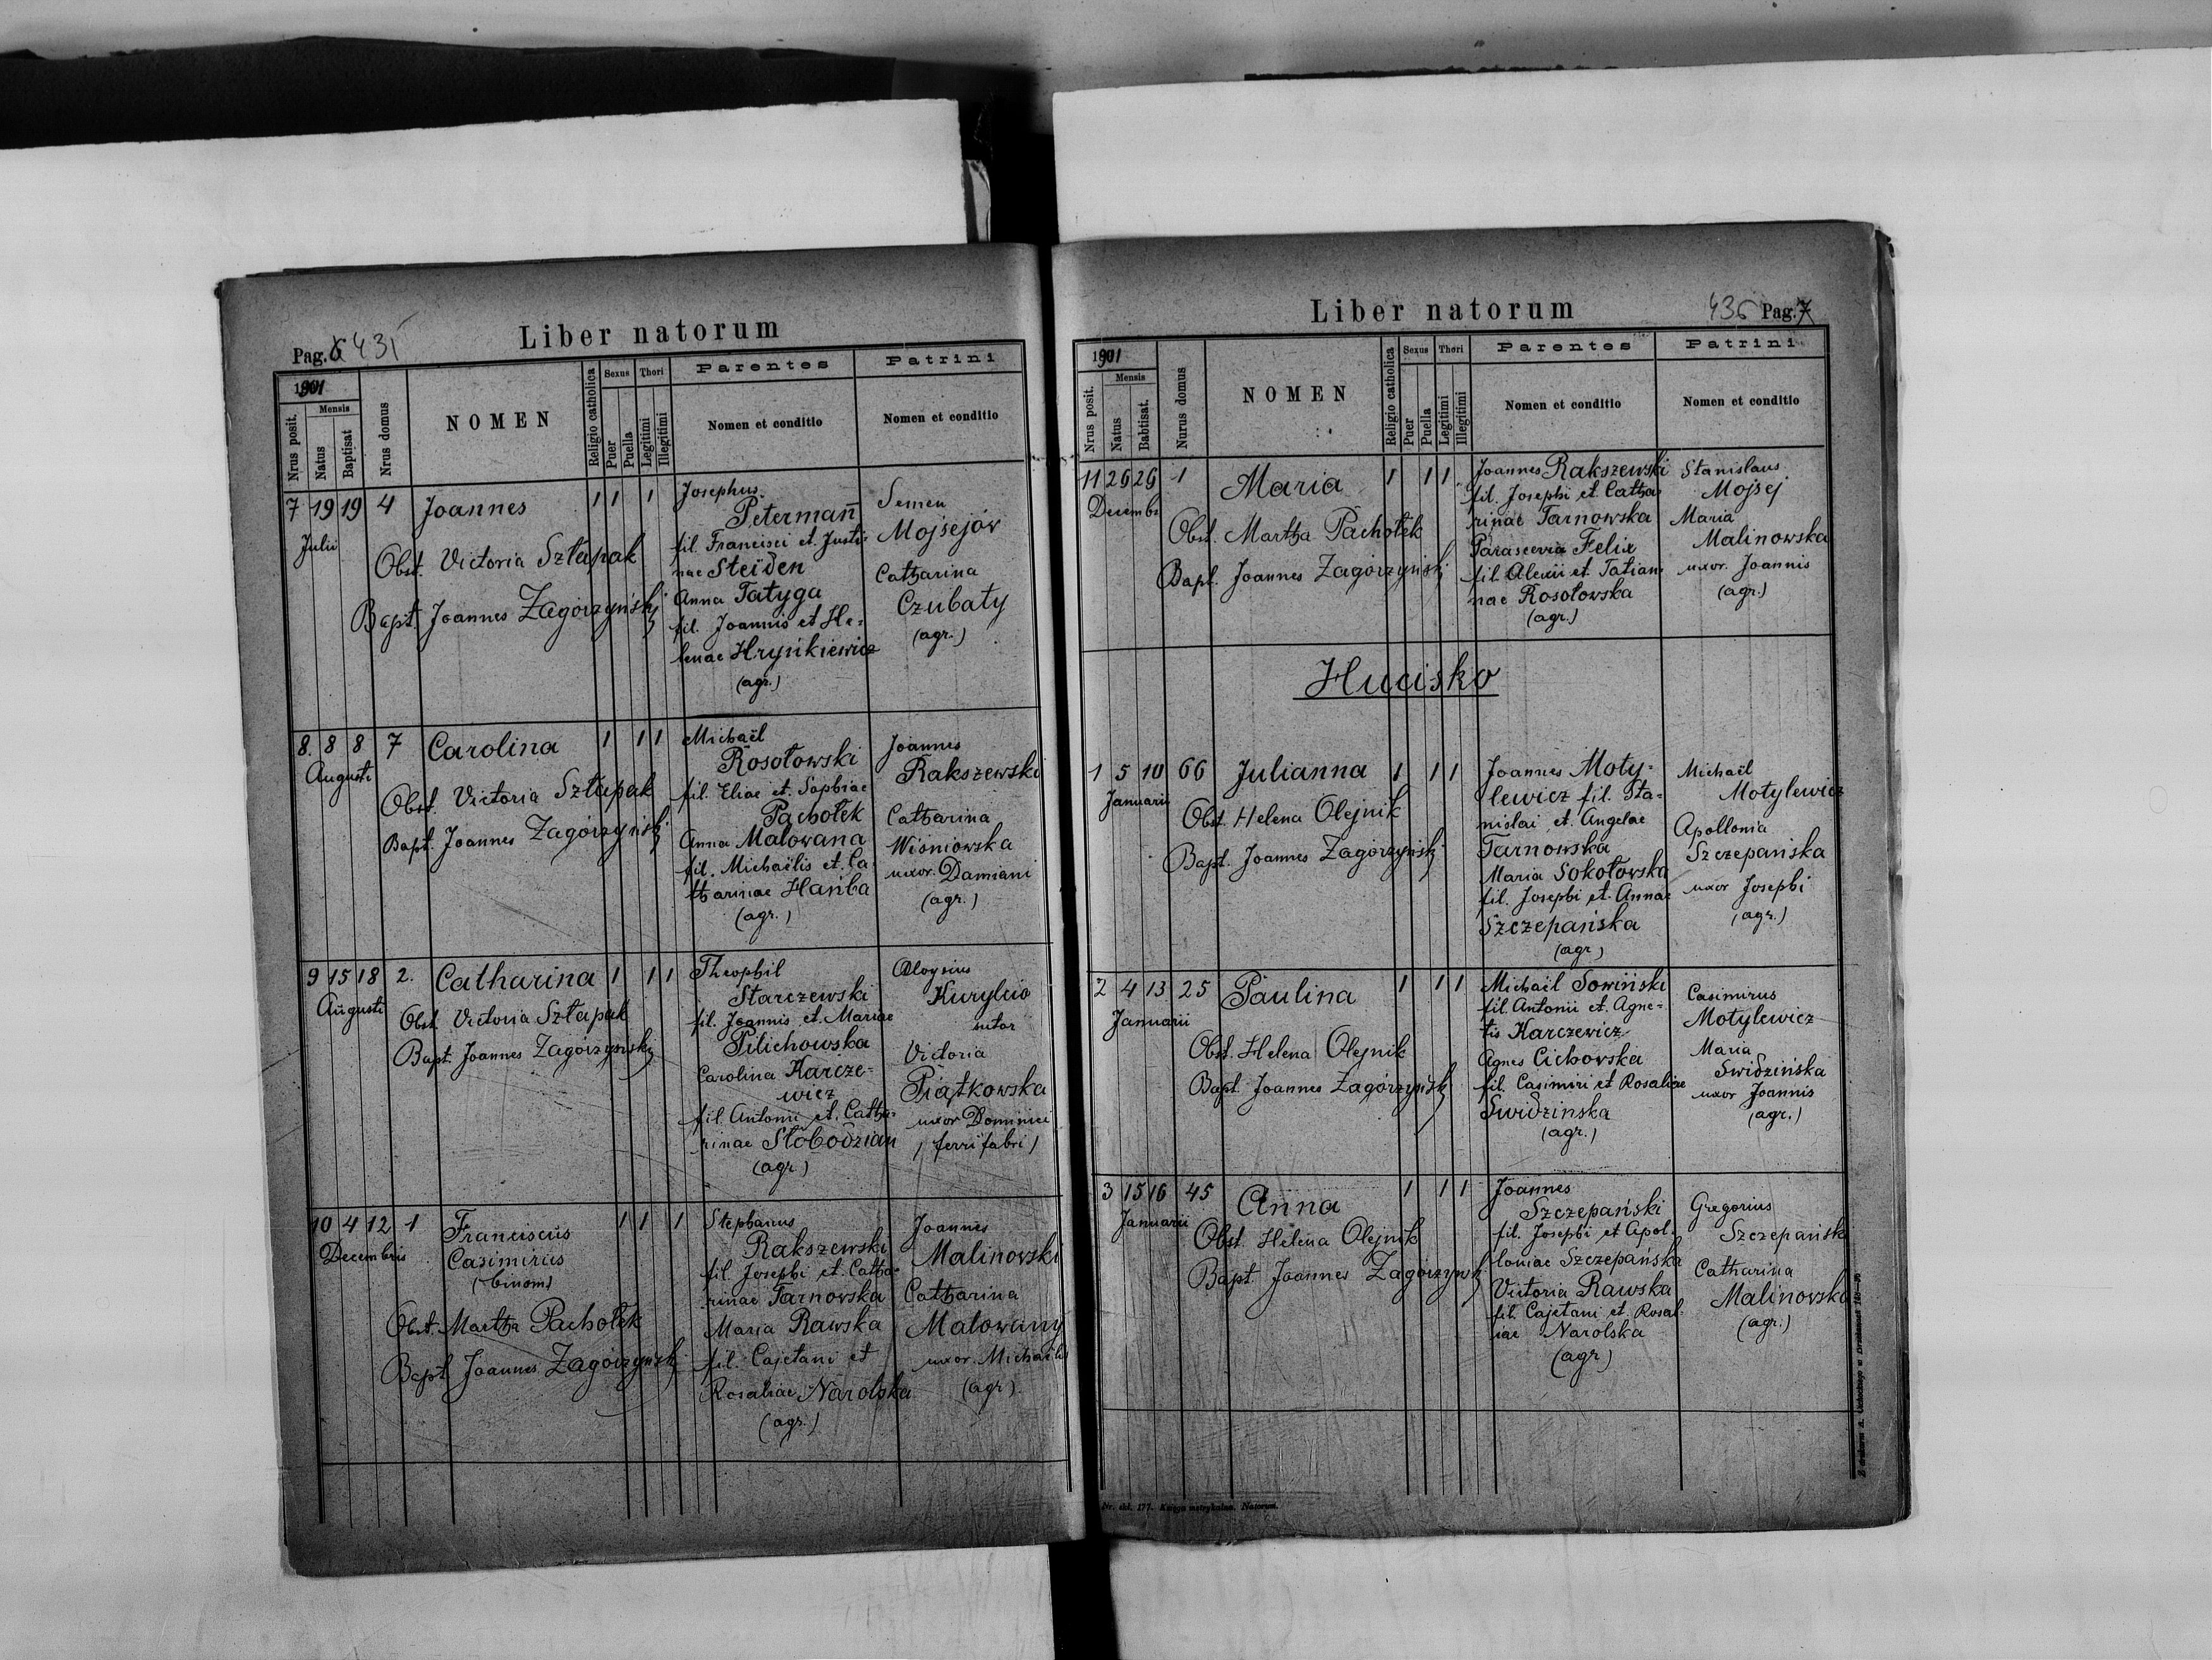 Pag. 6 435
Liber natorum
1901
Nrus posit.
Mensis
Natus
Baptisat
Nrus domus
NOMEN
Religio catholica
Sexus
Puer
Puella
Thori
Legitimi
Illegitimi
Parentes
Nomen et conditio
Patrini
Nomen et conditio
7 19 19 4 Joannes 1 1 1
Julii
Obst. Victoria Sztapak
Bapt. Joannes Zagórzyński
Josephus
Petermann
fil. Francisci et Justi-
nae Steiden
Anna Tatyga
fil. Joannis et He-
lenae Hryńkiewicz
(agr.)
Semen
Mojsejów
Catharina
Czubaty
(agr.)
8. 8 8 7 Carolina 1 1 1
Augusti
Obst. Victoria Sztapak
Bapt. Joannes Zagórzyński
Michaël
Rosołowski
fil. Eliae et Sophiae
Pachołek
Anna Malowana
fil. Michaëlis et Ca
tharinae Hańba
(agr.)
Joannes
Rakszewski
Catharina
Wiśniowska
uxor. Damiani
(agr.)
9 15 18 2. Catharina 1 1 1
Augusti
Obst. Victoria Sztapak
Bapt. Joannes Zagórzyński
Theophil
Starczewski
fil. Joannis et Mariae
Pilichowska
Carolina Karcze-
wicz
fil. Antonii et Catha-
rinae Słobodzian
(agr.)
Aloysius
Kuryłcio
sutor
Victoria
Piątkowska
uxor Dominici
(ferri fabri)
10 4 12 1 Franciscus 1 1 1
Decembris
Casimirus
(binom)
Obst. Martha Pachołek
Bapt. Joannes Zagórzyński
Stephanus
Rakszewski
fil. Josephi et Catha-
rinae Tarnowska
Maria Rawska
fil. Cajetani et
Rosaliae Narolska
(agr.)
Joannes
Malinowski
Catharina
Malowany
uxor. Michaëlis
(agr.)
Liber natorum
436 Pag. 7
1901
Nrus posit.
Mensis
Natus
Babtisat.
Nurus domus
NOMEN
Religio catholica
Sexus
Puer
Puella
Thori
Legitimi
Illegitimi
Parentes
Nomen et conditio
Patrini
Nomen et conditio
11 26 26 1 Maria 1 1 1
Decembr
Obst. Martha Pachołek
Bapt. Joannes Zagórzyński
Joannes Rakszewski
fil. Josephi et Catha-
rinae Tarnowska
Parascevia Felix
fil. Alexii et Tatian
nae Rosołowska
(agr.)
Stanislaus
Mojsej
Maria
Malinowska
uxor. Joannis
(agr.)
Hucisko
1 5 10 66 Julianna 1 1 1
Januarii
Obst. Helena Olejnik
Bapt. Joannes Zagórzyński
Joannes Moty-
lewicz fil. Sta-
nislai et Angelae
Tarnowska
Maria Sokołowska
fil. Josephi et Annae
Szczepańska
(agr)
Michaël
Motylewicz
Apollonia
Szczepańska
uxor Josephi
(agr.)
2 4 13 25 Paulina 1 1 1
Januarii
Obst. Helena Olejnik
Bapt. Joannes Zagórzyński
Michaël Sowiński
fil. Antonii et Agne-
tis Karczewicz
Agnes Cichowska
fil. Casimiri et Rosaliae
Świdzinska
(agr.)
Casimirus
Motylewicz
Maria
Świdzińska
uxor Joannis
(agr.)
3 15 16 45 Anna 1 1 1
Januarii
Obst. Helena Olejnik
Bapt. Joannes Zagórzyński
Joannes
Szczepański
fil. Josephi et Apol-
loniae Szczepańska
Victoria Rawska
fil. Cajetani et Rosal-
iae Narolska
(agr)
Gregorius
Szczepański
Catharina
Malinowska
(agr.)
Nr. skł. 177. Księga metrykalna. Natorum.